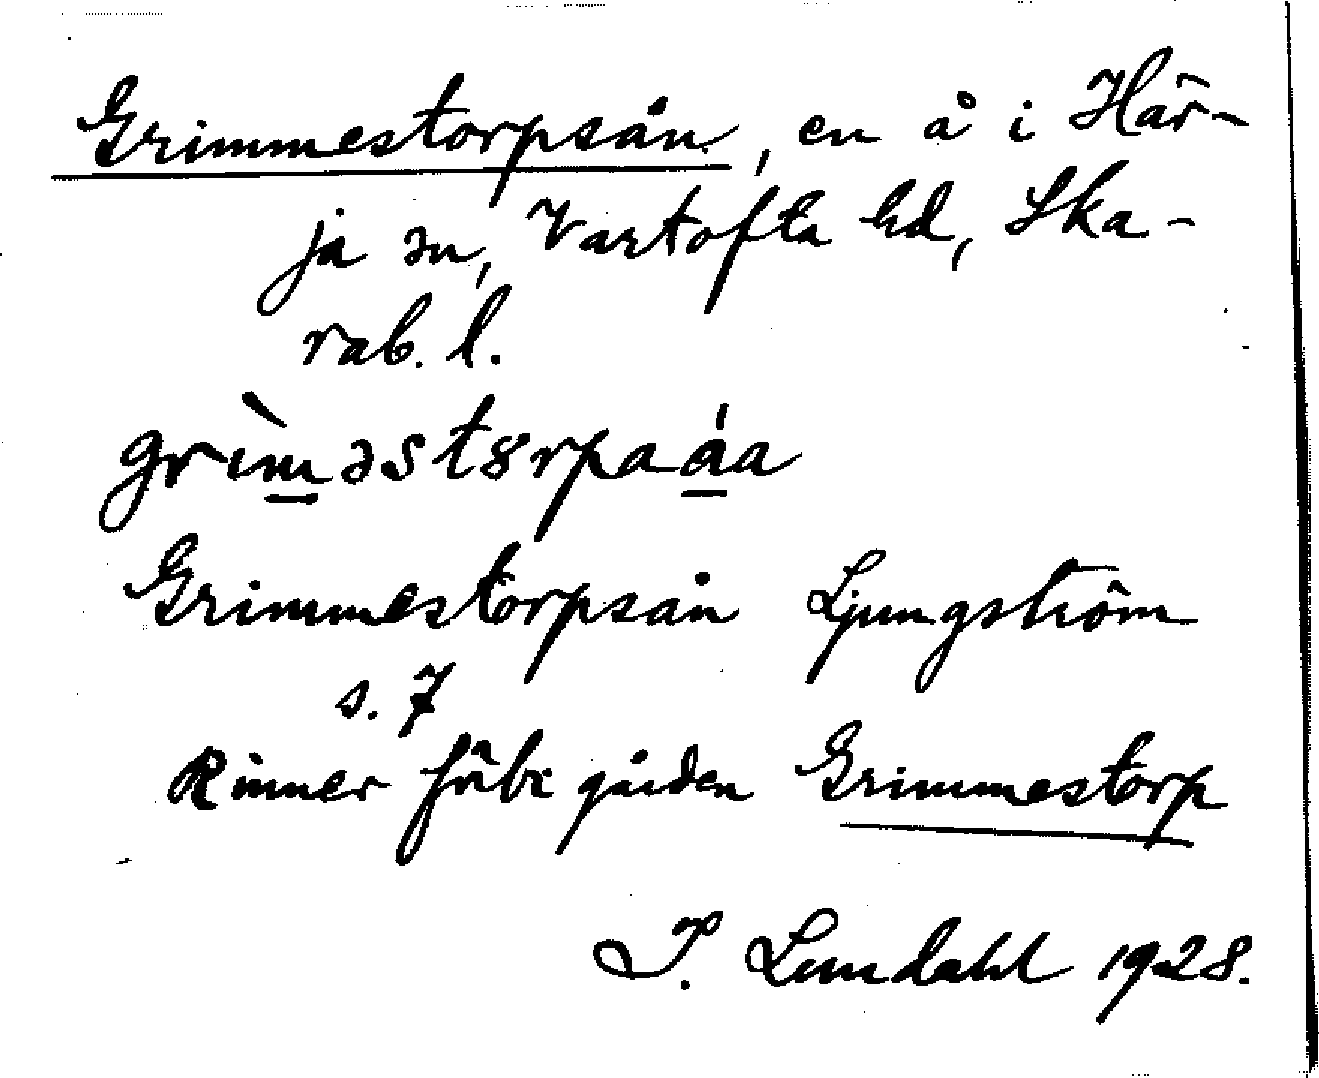 Grimmestorpsån, en å i Här-
ja sn, Vartofta hd, Ska-
rab. l.
grìməstȣrpaáa
Grimmestorpsån Ljungström
s. 7
Rinner förbi gården Grimmestorp
I. Lundahl 1928.